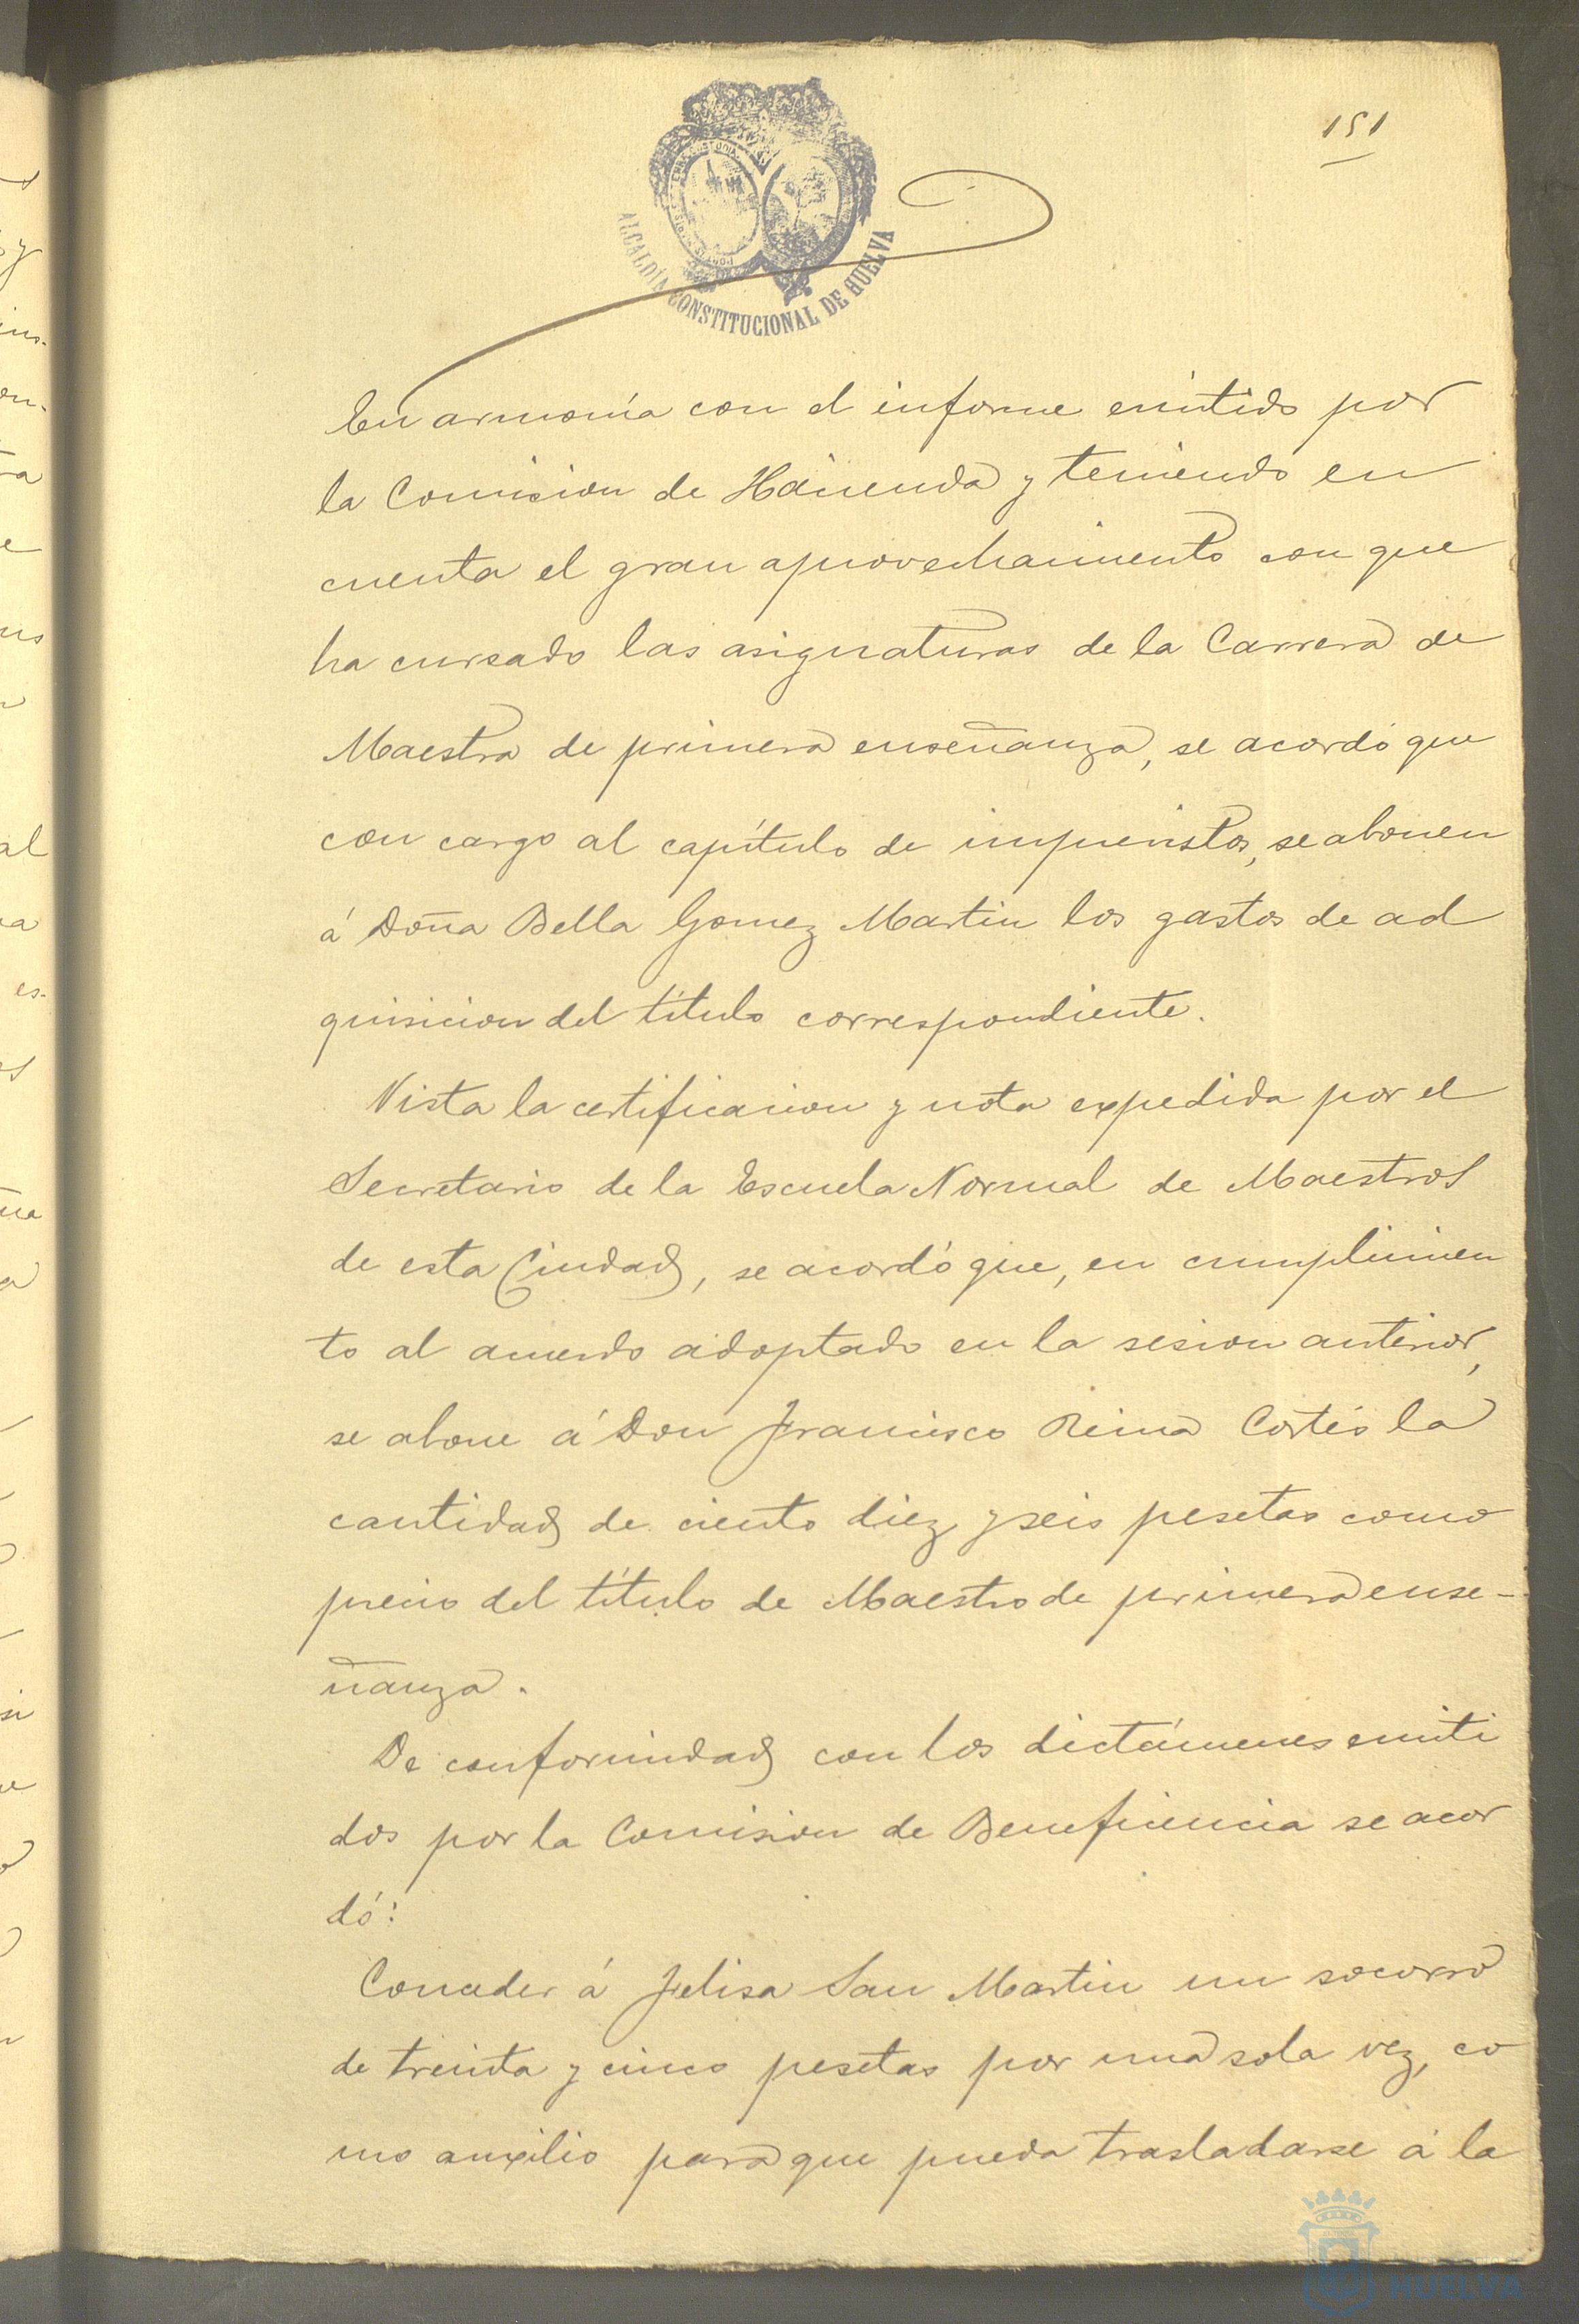 151
ALCALDÍA CONSTITUCIONAL DE HUELVA
En armonía con el informe emitido por
la Comision de Hacienda y teniendo en
cuenta el gran aprovechamiento con que
ha cursado las asignaturas de la Carrera de
Maestra de primera enseñanza, se acordó que
con cargo al capítulo de imprevistos, se abonen
á Doña Bella Gomez Martin los gastos de ad
quisicion del título correspondiente.
Vista la certificacion y nota expedida por el
Secretario de la Escuela Normal de Maestros
de esta Ciudad, se acordó que, en cumplimien
to al acuerdo adoptado en la sesion anterior,
se abone á Don Francisco Reina Cortés la
cantidad de ciento diez y seis pesetas como
precio del título de Maestro de primera ense-
ñanza.
De conformidad con los dictámenes emiti
dos por la Comision de Beneficencia se acor
dó:
Conceder á Felisa San Martin un socorro
de treinta y cinco pesetas por una sola vez, co
mo auxilio para que pueda trasladarse á la
HUELVA